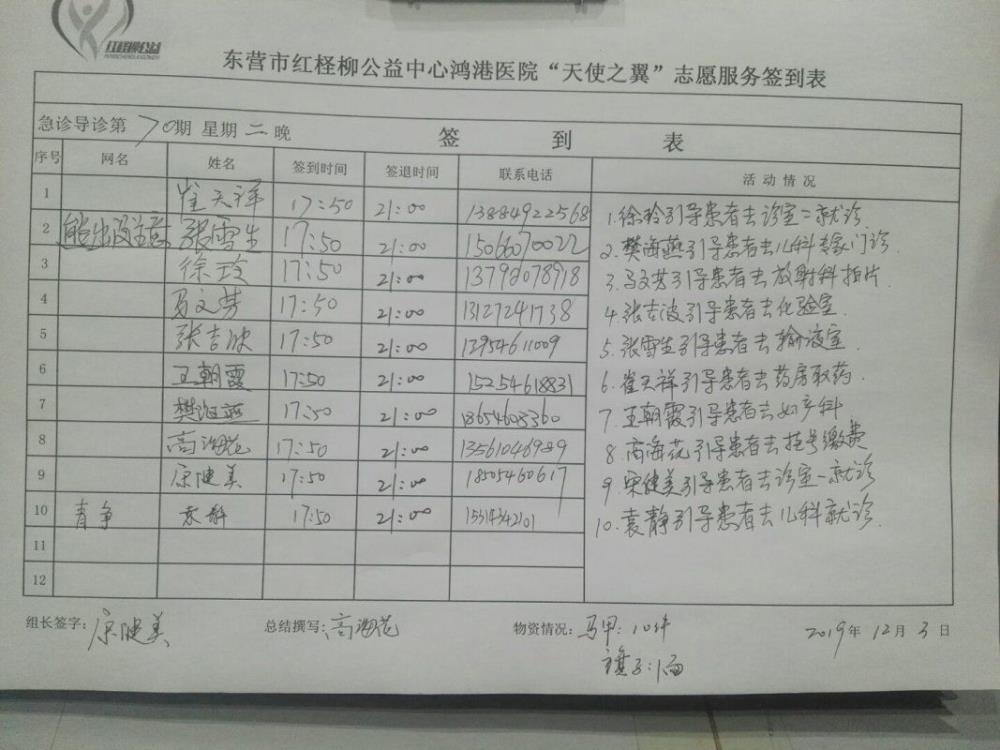 红柽柳公益
东营市红柽柳公益中心鸿港医院“天使之翼”志愿服务签到表
急诊导诊第70期 星期二晚 签到表
序号 网名 姓名 签到时间 签退时间 联系电话 活动情况
1 崔天祥 17:50 21:00 13884922568
2 张雪生 17:50 21:00 1506670022
3 徐玲 17:50 21:00 13792078918
4 马文芳 17:50 21:00 13127241738
5 张吉波 17:50 21:00 12954611009
6 王朝霞 17:50 21:00 15254618831
7 樊海燕 17:50 21:00 18654608360
8 高海花 17:50 21:00 13561046989
9 宋健美 17:50 21:00 18505460617
10 青争 袁静 17:50 21:00
11
12
1.徐玲引导患者去诊室二就诊
2.樊海燕引导患者去儿科专家门诊
3.马文芳引导患者去放射科拍片.
4.张吉波引导患者去化验室.
5.张雪生引导患者去输液室.
6.崔天祥引导患者去药房取药.
7.王朝霞引导患者去妇产科
8.高海花引导患者去挂号缴费
9.宋健美引导患者去诊室一就诊
10.袁静引导患者去儿科就诊.
组长签字:宋健美 总结撰写:高海花 物资情况:马甲:10件 2019年12月3日
旗子:1面